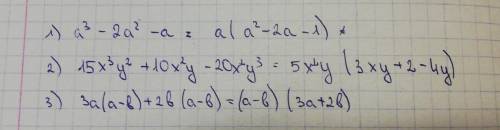 1) a³ - 2a² - a = a(a² - 2a - 1)
2) 15x³y² + 10x²y - 20x²y³ = 5x²y (3xy + 2 - 4y)
3) 3a(a-b)+2b(a-b)=(a-b)(3a+2b)